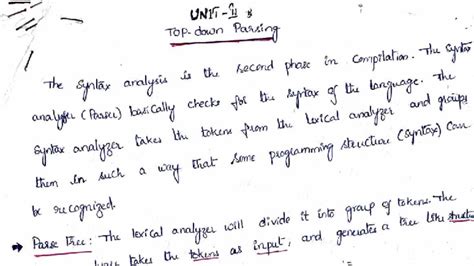 UNIT-II
Top-down Parsing
The Syntax analysis is the second phase in Compilation. The Syntax
analyzer (Parser) basically checks for the syntax of the language. The
Syntax analyzer takes the tokens from the lexical analyzer and groups
them in such a way that some programming structure (syntax) can
be recognized.
→ Parse Tree: The lexical analyzer will divide it into group of tokens. The
takes the tokens as input, and generates a tree like structure